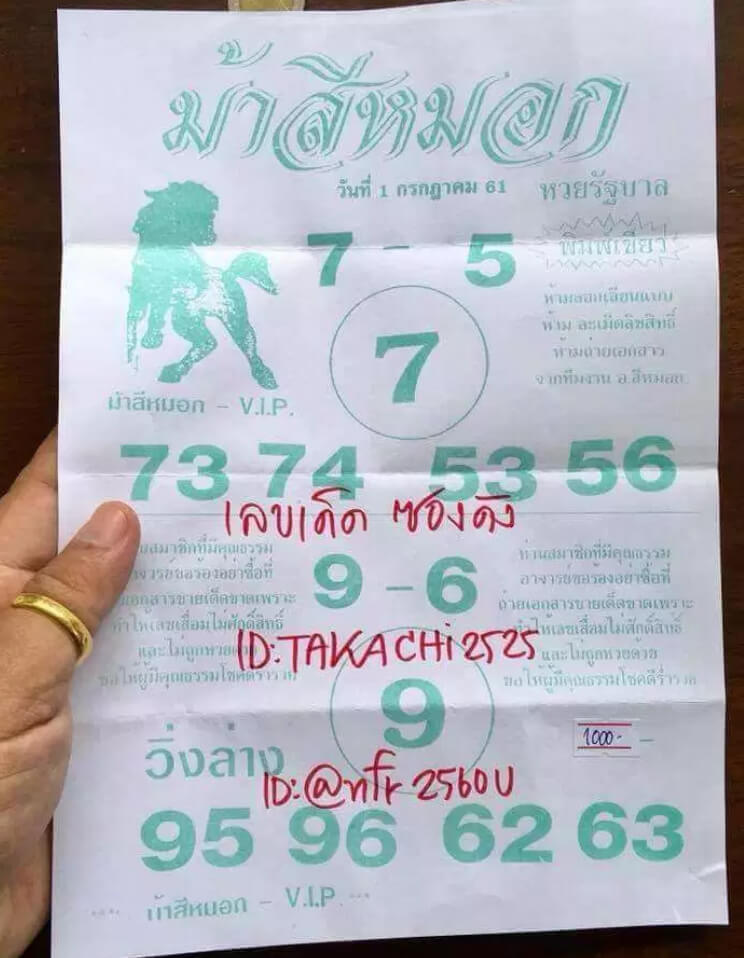 ม้าสีหมอก
วันที่ 1 กรกฎาคม 61 หวยรัฐบาล
7 - 5
พิมพ์เขียว
ห้ามลอกเลียนแบบ
ห้าม ละเมิดลิขสิทธิ์
ห้ามถ่ายเอกสาร
จากทีมงาน อ.สีหมอก
7
ม้าสีหมอก - V.I.P.
73 74 53 56
เลขเด็ด ซองดัง
านสมาชิกที่มีคุณธรรม
อาจารย์ขอร้องอย่าซื้อที่
ายเอกสารขายเด็ดขาดเพราะ
ทำให้เลขเสื่อมไม่ศักดิ์สิทธิ์
และไม่ถูกหวยด้วย
ขอให้ผู้มีคุณธรรมโชคดีร่ำรวย
9 - 6
ท่านสมาชิกที่มีคุณธรรม
อาจารย์ขอร้องอย่าซื้อที่
ถ่ายเอกสารขายเด็ดขาดเพราะ
ทำให้เลขเสื่อมไม่ศักดิ์สิทธิ์
และไม่ถูกหวยด้วย
ขอให้ผู้มีคุณธรรมโชคดีร่ำรวย
ID:TAKACHi2525
9
1000.-
วิ่งล่าง
ID:@nfr2560U
95 96 62 63
ม้าสีหมอก - V.I.P.